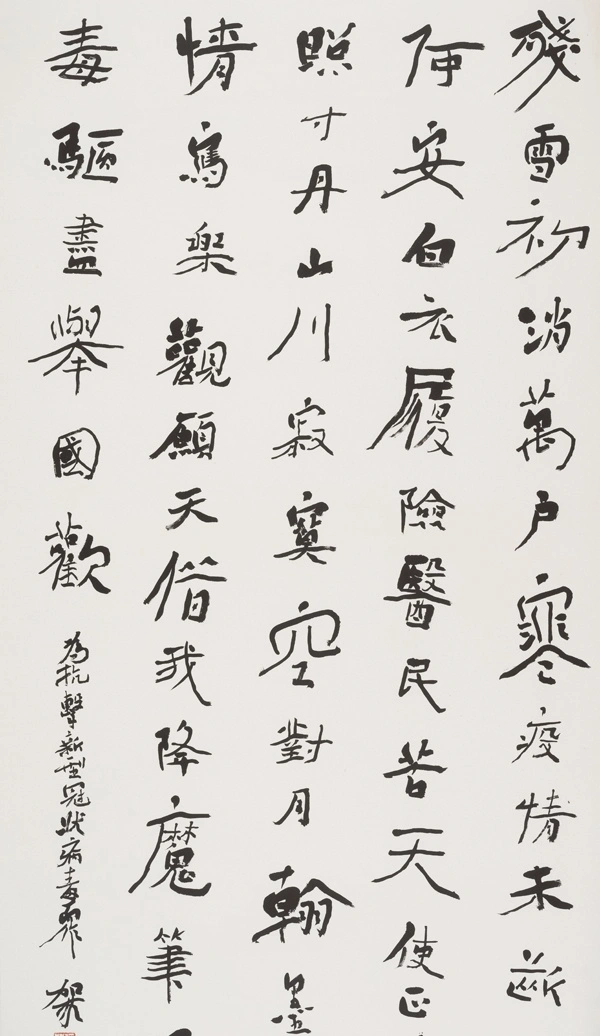 殘雪初消萬户寒疫情未斷
何安白衣履險醫民苦天使正
照寸丹山川寂寞空對月翰墨
情寫樂觀願天借我降魔筆
毒驅盡舉國歡
為抗擊新型冠狀病毒而作